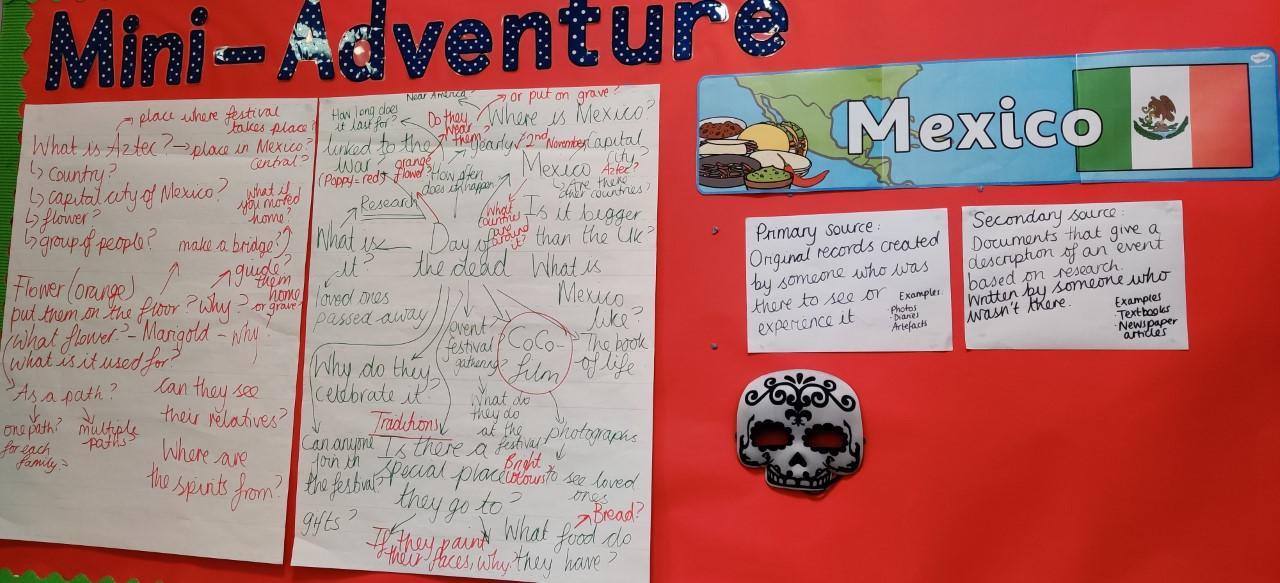 Mini-Adventure
place where festival
takes place?
What is Aztec? → place in Mexico?
central?
↳ country?
↳ capital city of Mexico?
↳ flower?
↳ group of people?
what if
you moved
home?
make a bridge?
guide?
them
home
or grave?
Flower (orange)
put them on the floor? Why?
what flower? - Marigold - Why?
what is it used for?
As a path?
one path?
for each
family?
multiple
paths?
can they see
their relatives?
Where are
the spirits from?
Near America?
or put on grave?
How long does
it last for?
Do they
wear
them?
Where is Mexico?
linked to the
war?
(Poppy = red)
orange
flower?
yearly? 2nd
November
How often
does it happen?
Capital
city?
Aztec?
Mexico
Are there
other countries?
Research
What
countries
are
around
it?
Is it bigger
than the UK?
What is
it?
Day of
the dead
What is
Mexico
like?
The book
of life
loved ones
passed away
event
festival
gathering?
CoCo-
film
Why do they
celebrate it?
What do
they do
at the
festival?
photographs
to see loved
ones
Traditions
Can anyone
join in
the festival?
Is there a
special place
they go to?
Bright
colours
gifts?
If they paint
their faces, why?
Bread?
What food do
they have?
Mexico
Primary source:
Original records created
by someone who was
there to see or
experience it
Examples:
·Photos
·Diaries
Artefacts
Secondary source:
Documents that give a
description of an event
based on research.
Written by someone who
wasn't there.
Examples
·Textbooks
·Newspaper
articles